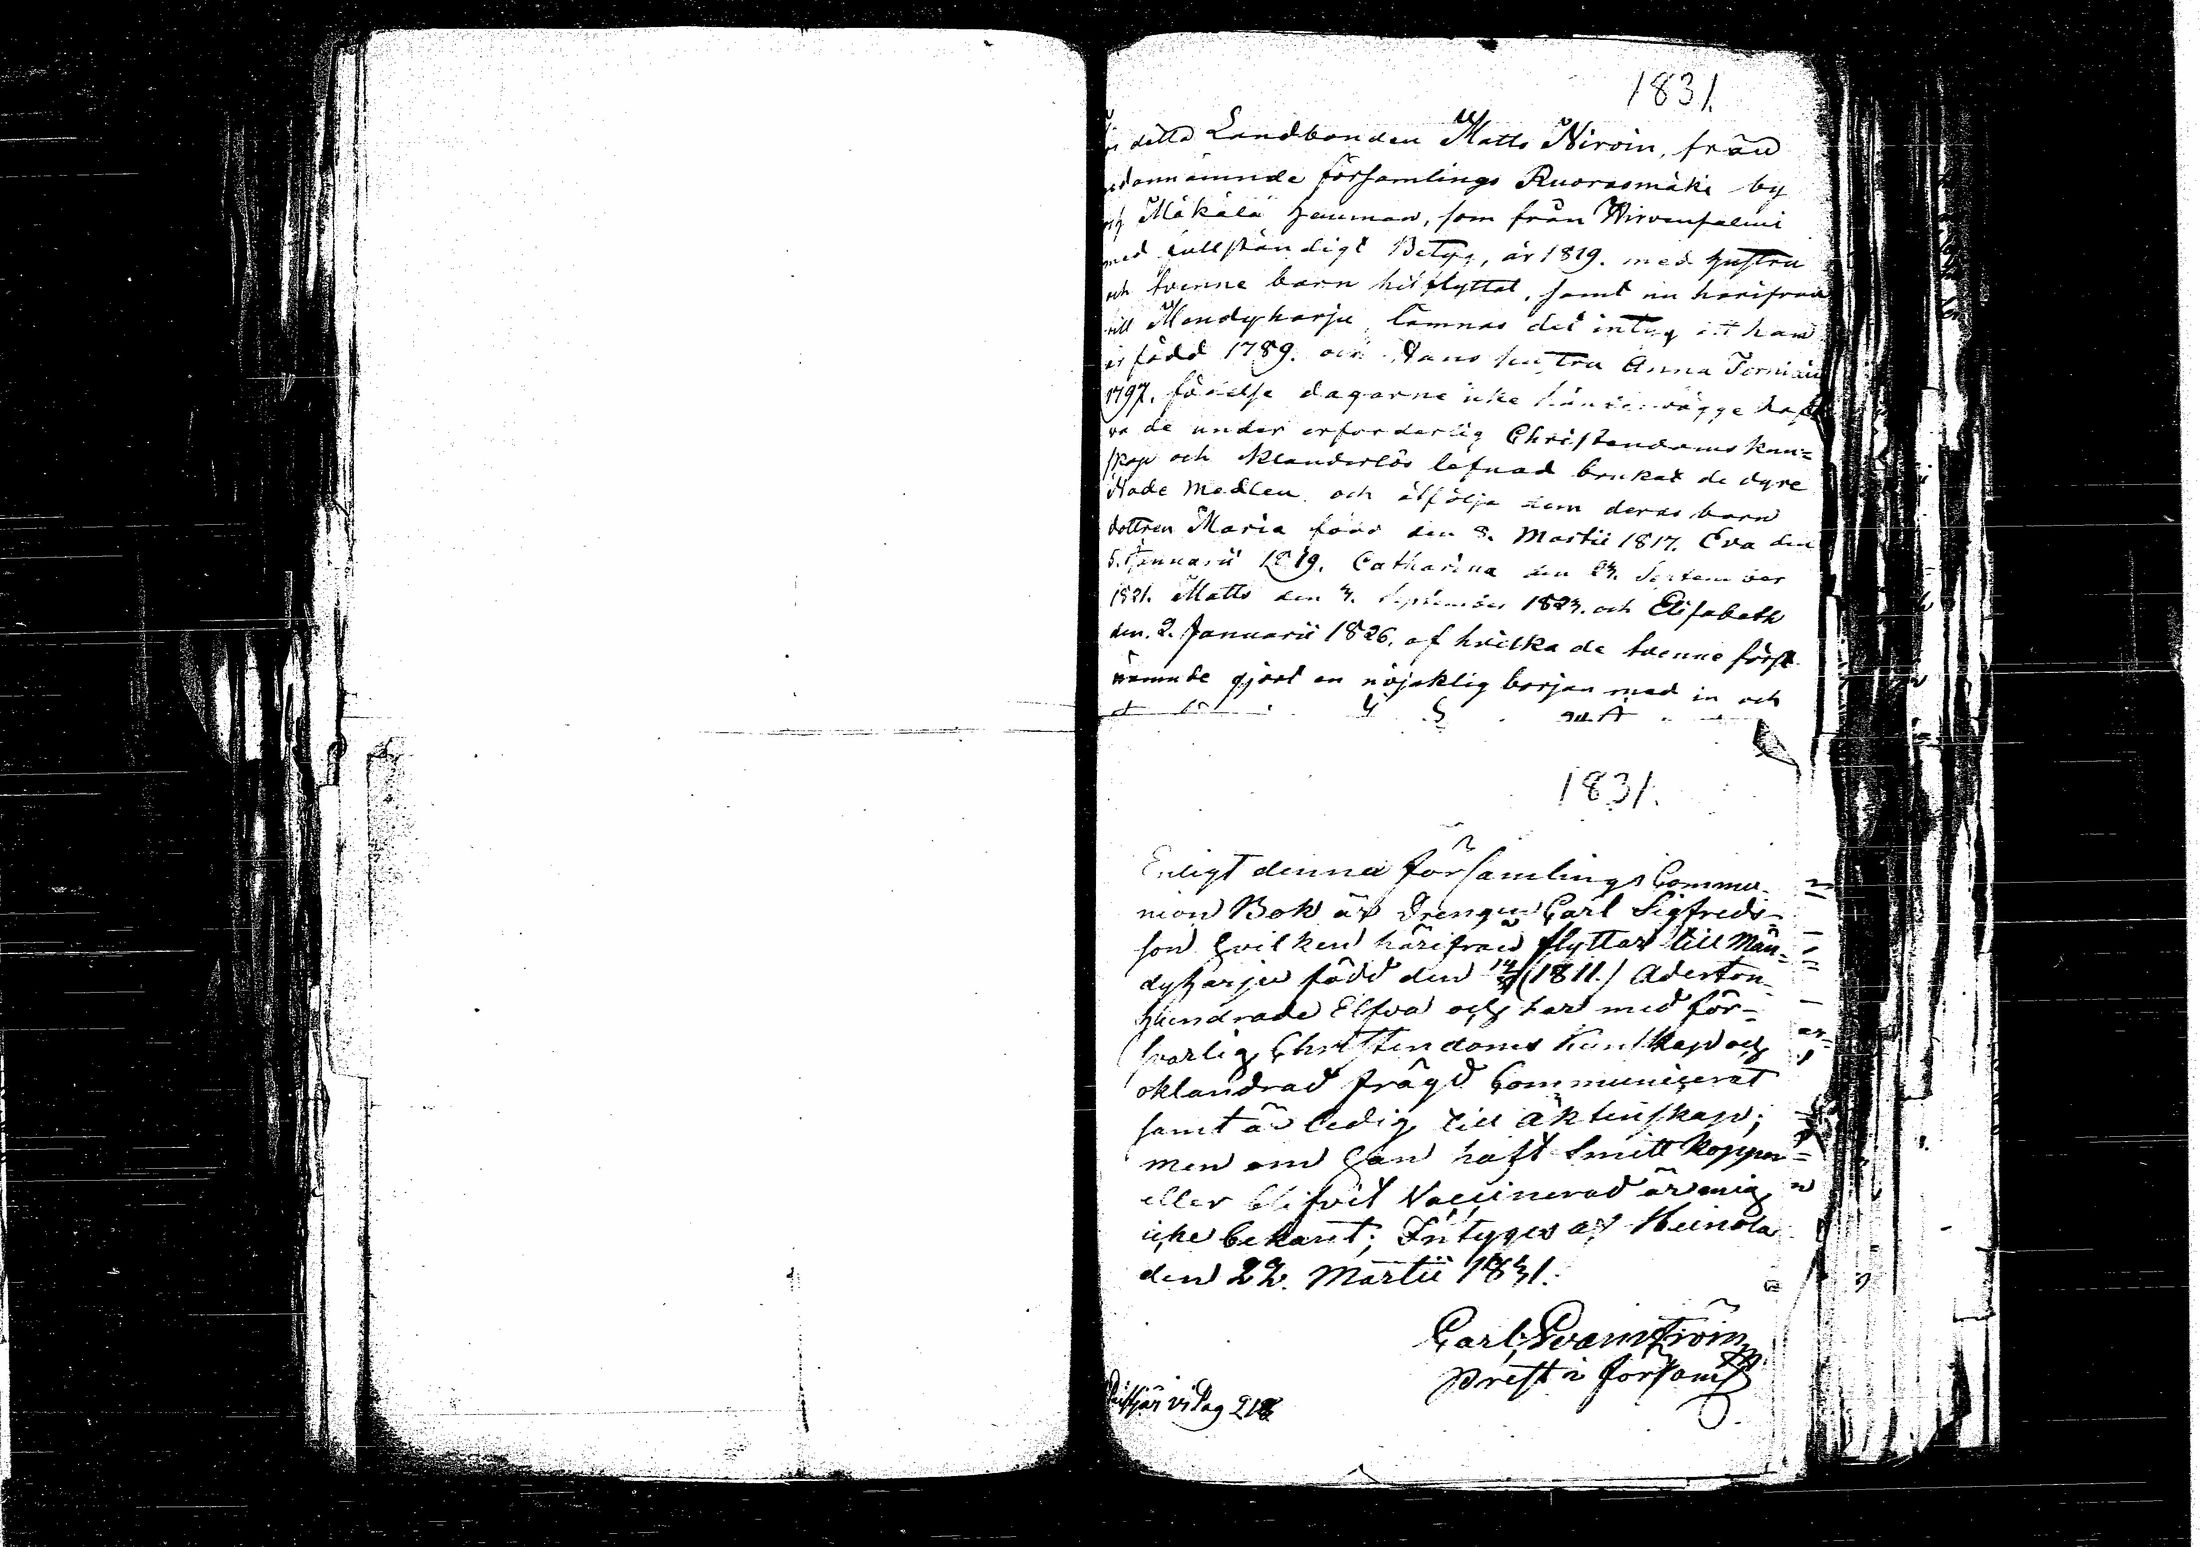 1831.
detta Landbonden Matts Nirvin, från
nämnde församlings Ruorasmäki by
Mäkälä hemman, som från Wirvensalmi
med fullständigt Betyg, år 1819. med hustru
och tvenne barn hitflyttat, samt nu härifrån
till Mendyharju, lämnas det intyg att han
är född 1789. och Hans hustru Anna
1797. födelse dagarne icke
de under erforderlig Christendoms kun=
skap och klanderlös lefnad brukat de dyre
Nade Medlen och åtfölja dem deras barn
dottren Maria född den 8. Martii 1817. Eva den
5. Januarii 1819. Catharina den 23. September
1821. Matts den 3. September 1823. och Elisabeth
den 2. Januarii 1826. af hvilka de tvenne först
nämnde gjort en nöjaktig början med in och
1831.
Enligt denna Församlings Commu-
nion Bok är Drengen Carl Sigfreds-
son hvilken härifrån flyttar till Män-
dyharju född den (1811.) Aderton-
hundrade Elfva och har med för=
svarlig Christendoms Kunskap och
oklandrad frägd Communicerat
samt är ledig till äktenskap;
men om han haft Smitt Koppor
eller blifvit Vaccinerad är mig
icke bekant; Intygas af Heinola
den 22. Martii 1831.
Carl
Prest i församl
Pag 218